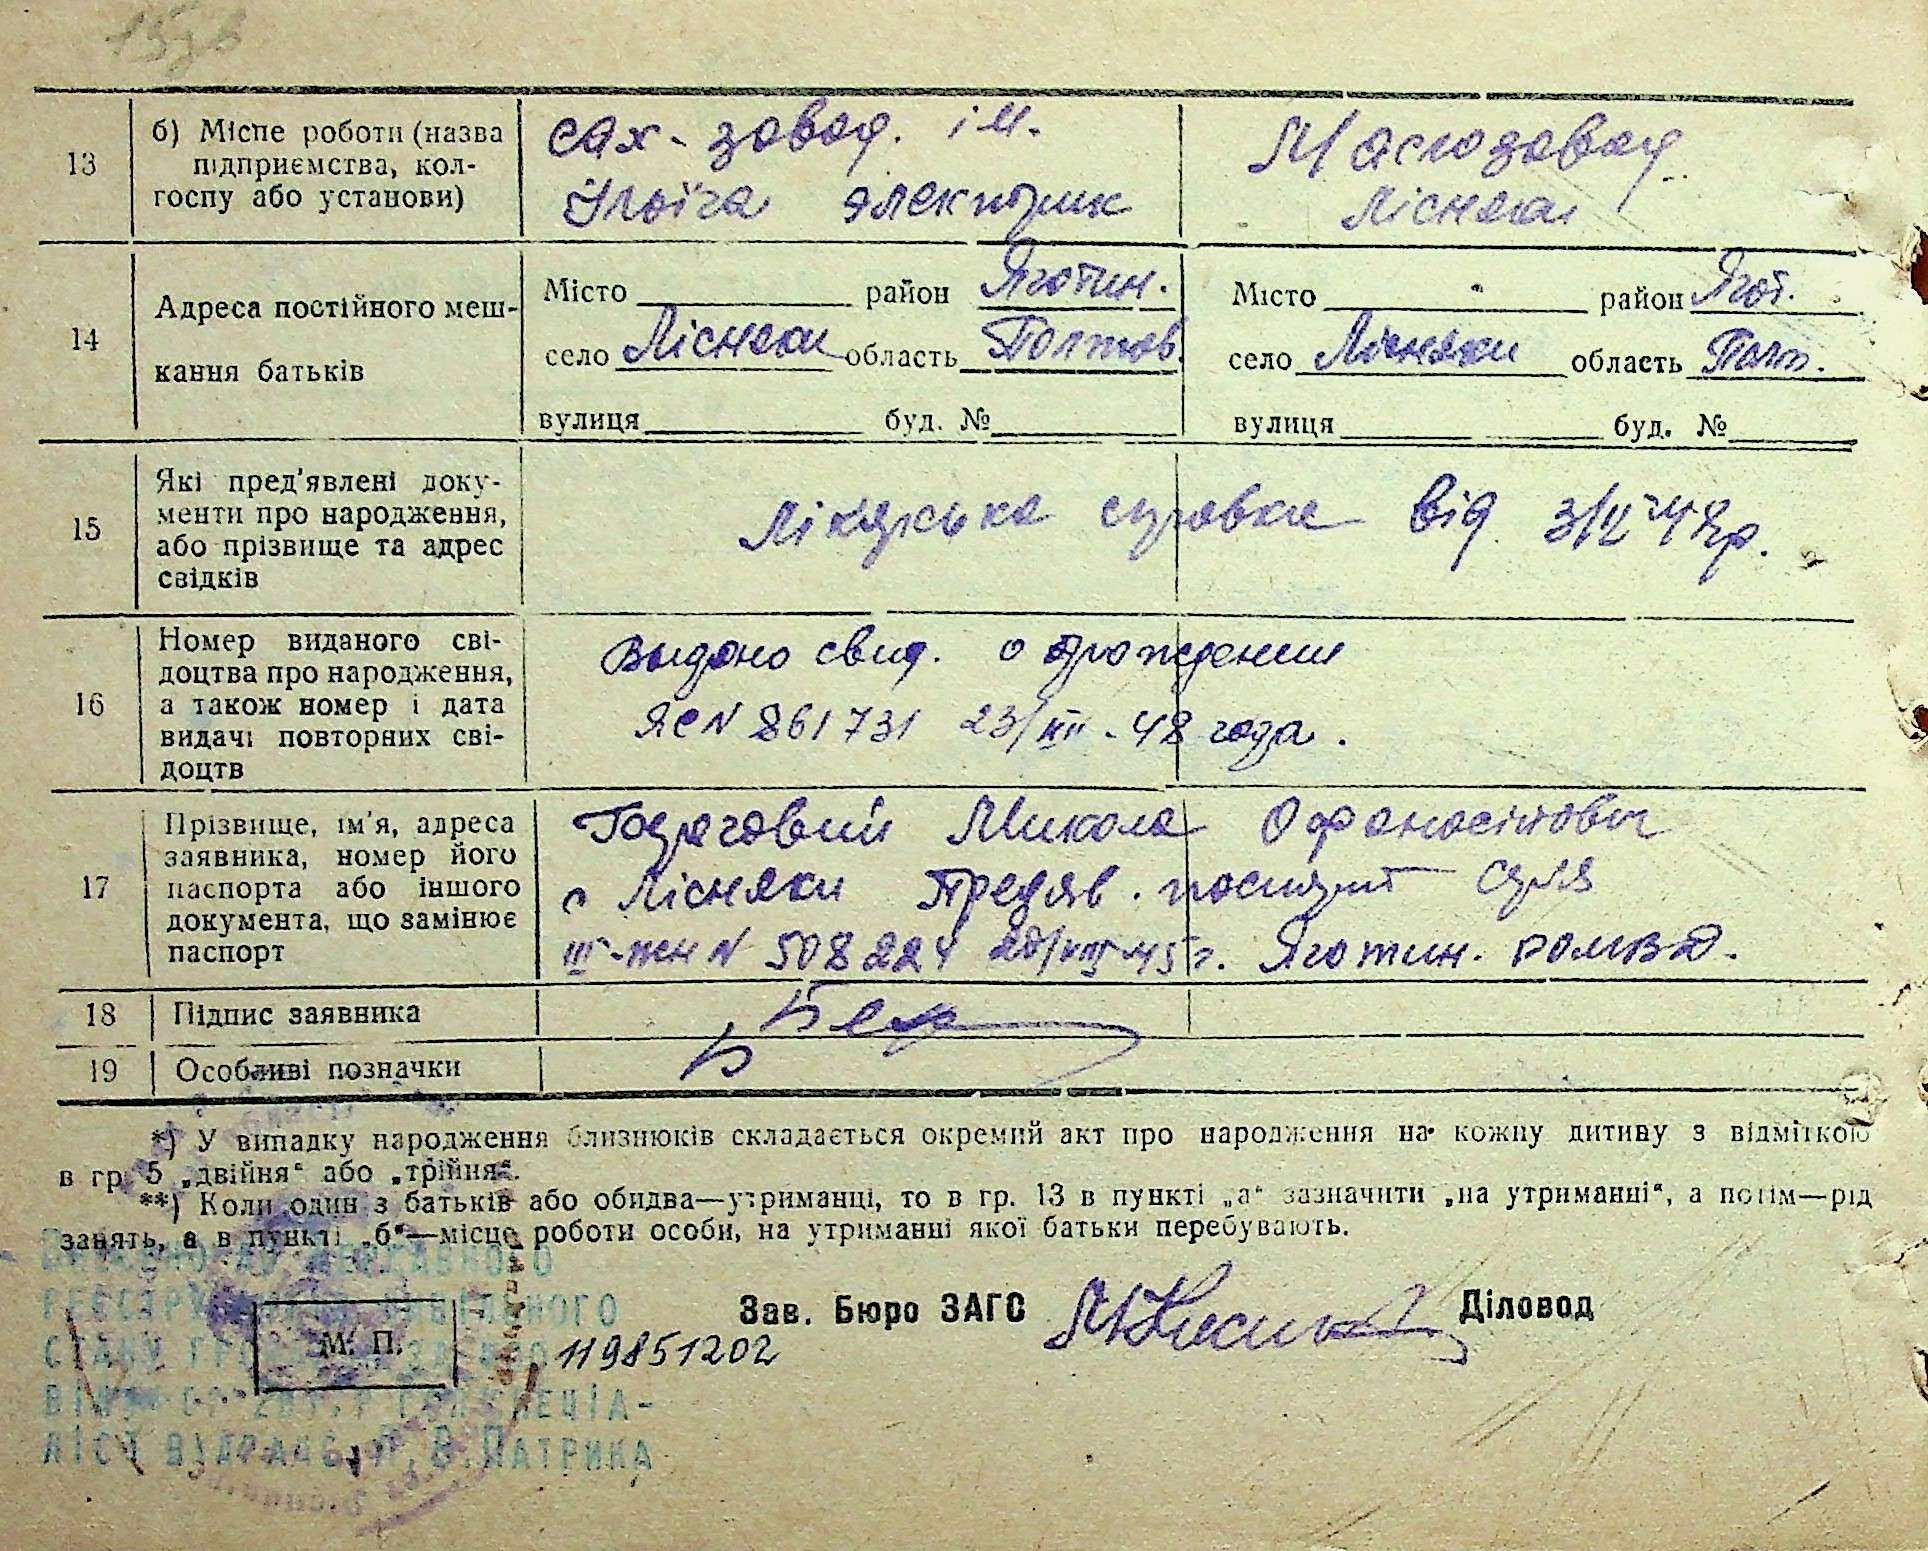 13
б) Місце роботи (назва
підприємства, кол-
госпу або установи)
сах-завод. ім.
Ілліча электрик
Маслозавод
Лісняки
14
Адреса постійного меш-
кання батьків
Місто район Яготин.
село Лісняки область Полтов.
вулиця буд. №
Місто район Ягот.
село Лісняки область Полт.
вулиця буд. №
15
Які пред'явлені доку-
менти про народження,
або прізвище та адрес
свідків
Лікарська справка від
16
Номер виданого сві-
доцтва про народження,
а також номер і дата
видачі повторних сві-
доцтв
Выдано свид. о рождении
ЯС N 861731 23/VII - 48 года.
17
Прізвище, ім'я, адреса
заявника, номер його
паспорта або іншого
документа, що замінює
паспорт
Микола Офанасійович
с Лісняки Предяв. паспорт серія
N 508224 20/VIII-45 г. Яготин. РОМВД.
18
Підпис заявника
19
Особливі позначки
*) У випадку народження близнюків складається окремий акт про народження на кожну дитину з відміткою
в гр. 5 „двійня“ або „трійня“.
**) Коли один з батьків або обидва—утриманці, то в гр. 13 в пункті „а“ зазначити „на утриманні“, а потім—рід
занять, а в пункті „б“—місце роботи особи, на утриманні якої батьки перебувають.
ДЕРЖАВНОГО
СТАНУ
ЛІСТ В. ПАТРИКА
М. П.
119851202
Зав. Бюро ЗАГС
Діловод